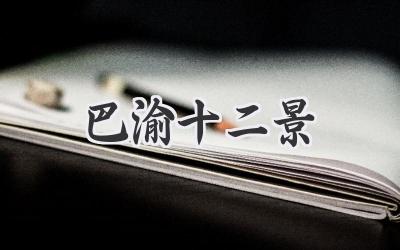 巴渝十二景